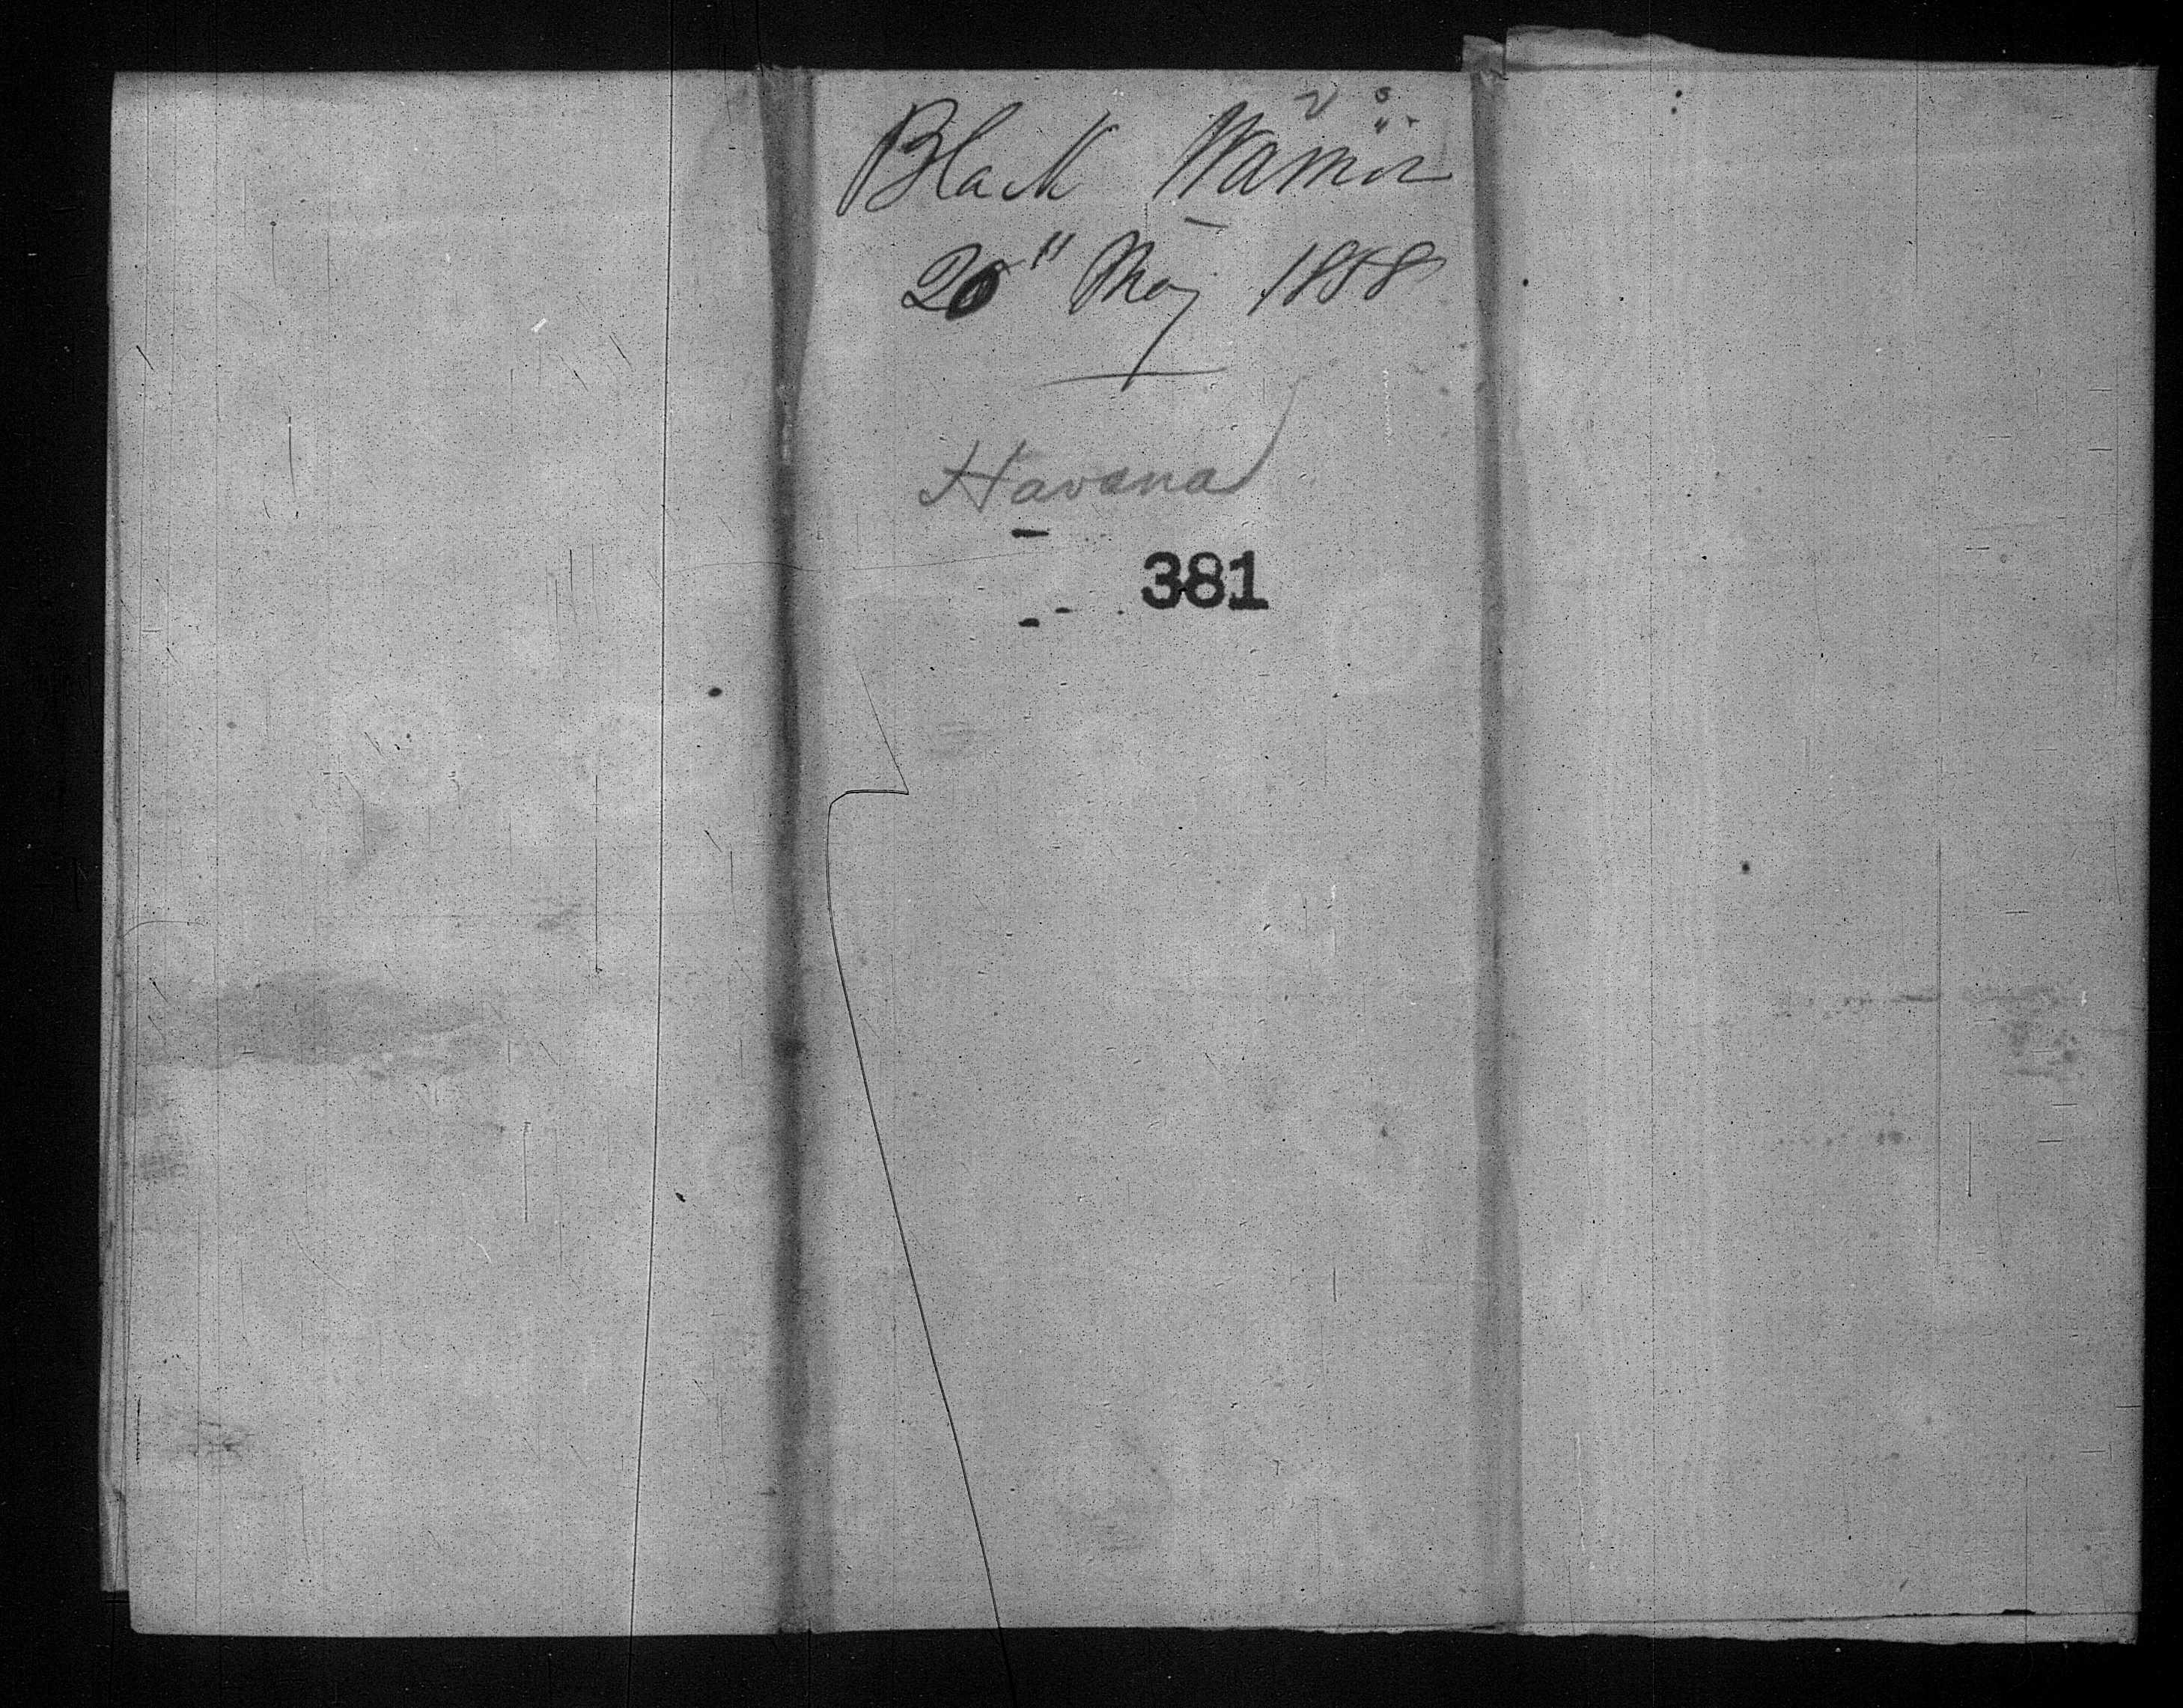 Black Warrior
20" May 1858
Havana
381